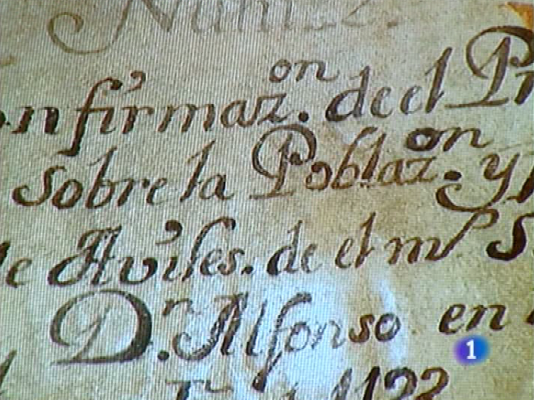 Nuni
onfirmaz.on de el Pr
sobre la Poblaz.on y
de Aviles. de el m.l S
D.n Alfonso en
1122
1